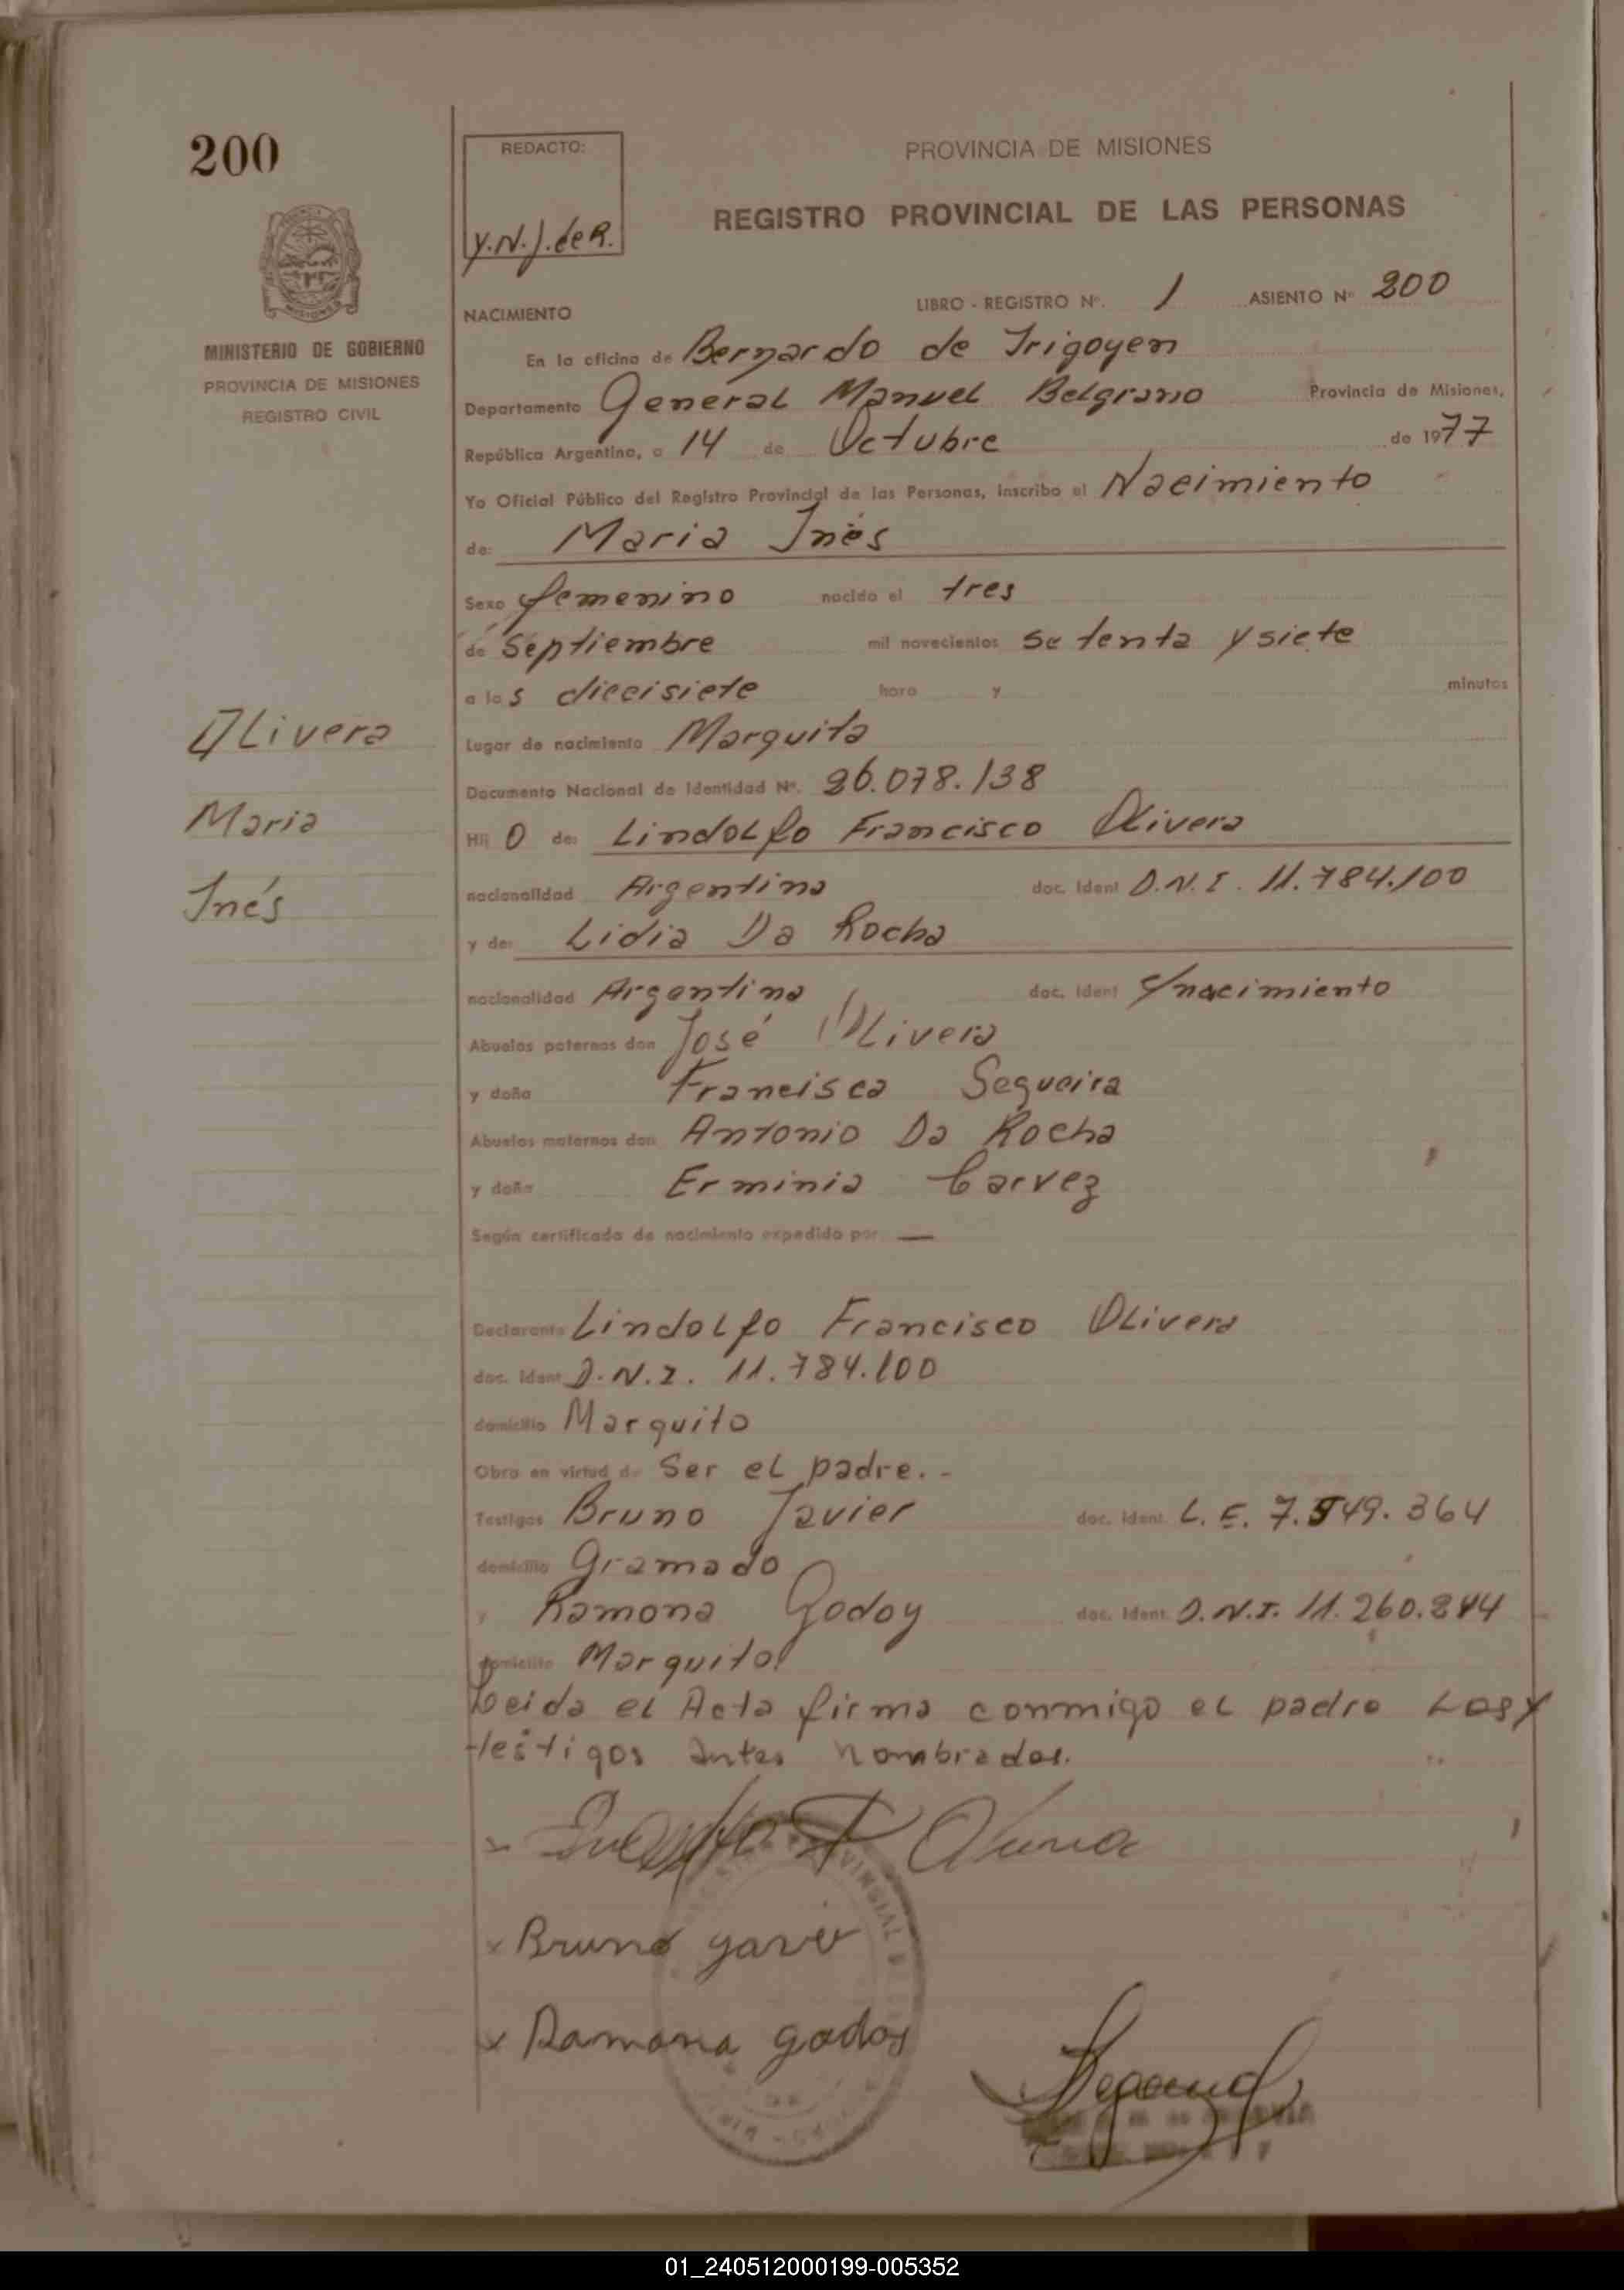 200
REDACTO:
Y.N.J. de R.
PROVINCIA DE MISIONES
REGISTRO PROVINCIAL DE LAS PERSONAS
MINISTERIO DE GOBIERNO
PROVINCIA DE MISIONES
REGISTRO CIVIL
NACIMIENTO LIBRO - REGISTRO Nº. 1 ASIENTO Nº 200
En la oficina de Bernardo de Irigoyen
Departamento General Manuel Belgrano Provincia de Misiones,
República Argentina, a 14 de Octubre de 1977
Yo Oficial Público del Registro Provincial de las Personas, inscribo el Nacimiento
de: Maria Inés
Sexo femenino nacido el tres
de Septiembre mil novecientos setenta y siete
a las diecisiete hora y minutos
Lugar de nacimiento Marquita
Documento Nacional de Identidad Nº. 26.078.138
Hij O de: Lindolfo Francisco Olivera
nacionalidad Argentina doc. Ident D.N.I. 11.784.100
y de: Lidia Da Rocha
nacionalidad Argentina doc. Ident c/nacimiento
Abuelos paternos don José Olivera
y doña Francisca Sequeira
Abuelos maternos don Antonio Da Rocha
y doña Erminia Carvez
Según certificado de nacimiento expedido por —
Olivera
Maria
Inés
Declarante Lindolfo Francisco Olivera
doc. Ident D.N.I. 11.784.100
domicilio Marquito
Obra en virtud de Ser el padre.-
Testigos Bruno Javier doc. Ident. L.E. 7.549.364
domicilio Gramado
y Ramona Godoy doc. Ident. D.N.I. 11.260.844
domicilio Marquito
Leida el Acta firma conmigo el padre Los y
testigos antes nombrados.
Bruno Javier
Ramona Godoy
01_240512000199-005352